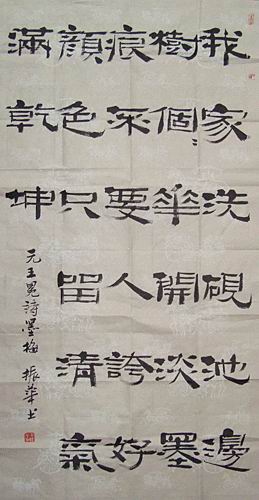 我家洗硯池邊
樹個々華開淡墨
痕不要人誇好
顏色只留清氣
滿乾坤
元王冕詩墨梅 振華书